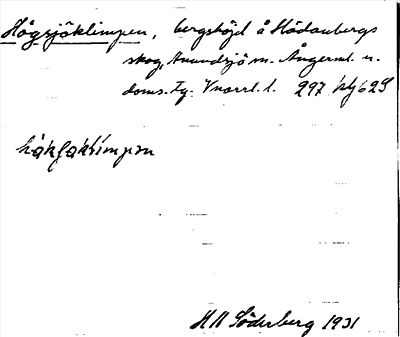 Högsjöklimpen, bergshöjd å Hädanbergs
skog, Anundsjö sn. Ångerml. n.
doms. Tg. Vnorrl. l. 297
håkʃøklímpən
H N Söderberg 1931